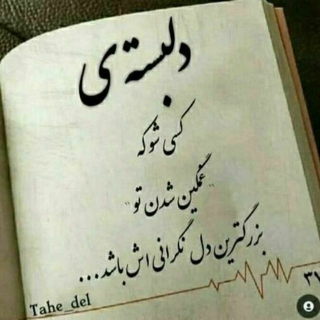 دلبسته ی
کسی شو که
"غمگین شدن تو"
بزرگترین دل نگرانی اش باشد...
۳۷
Tahe_del